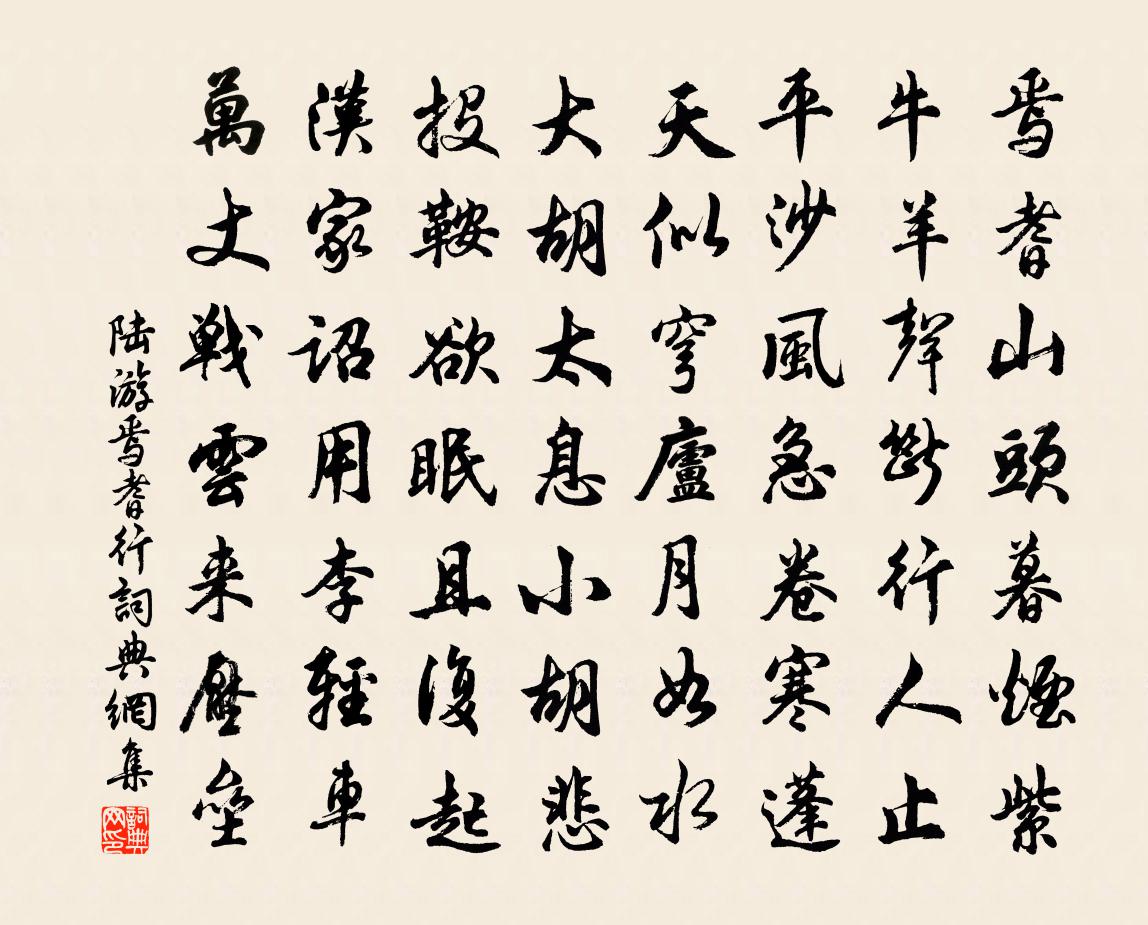 焉耆山頭暮煙紫
牛羊聲斷行人止
平沙風急卷寒蓬
天似穹廬月如水
大胡太息小胡悲
投鞍欲眠且復起
漢家詔用李輕車
萬丈戰雲来壓壘
陆游焉耆行詞典網集
詞典
网印